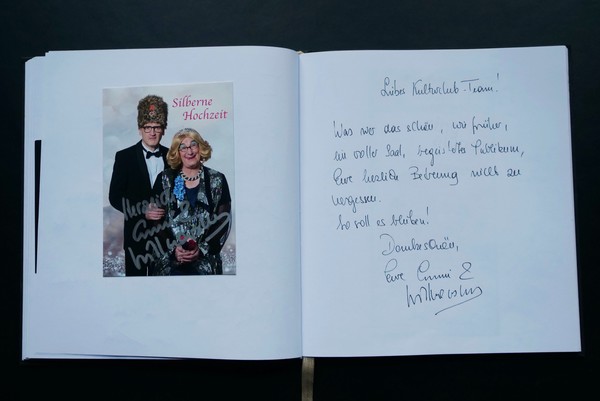 Silberne
Hochzeit
Liebes Kulturclub-Team!
Was war das schön, wie früher,
ein voller Saal, begeistertes Publikum,
Eure herzliche Betreuung nicht zu
vergessen.
So soll es bleiben!
Dankeschön,
Eure &